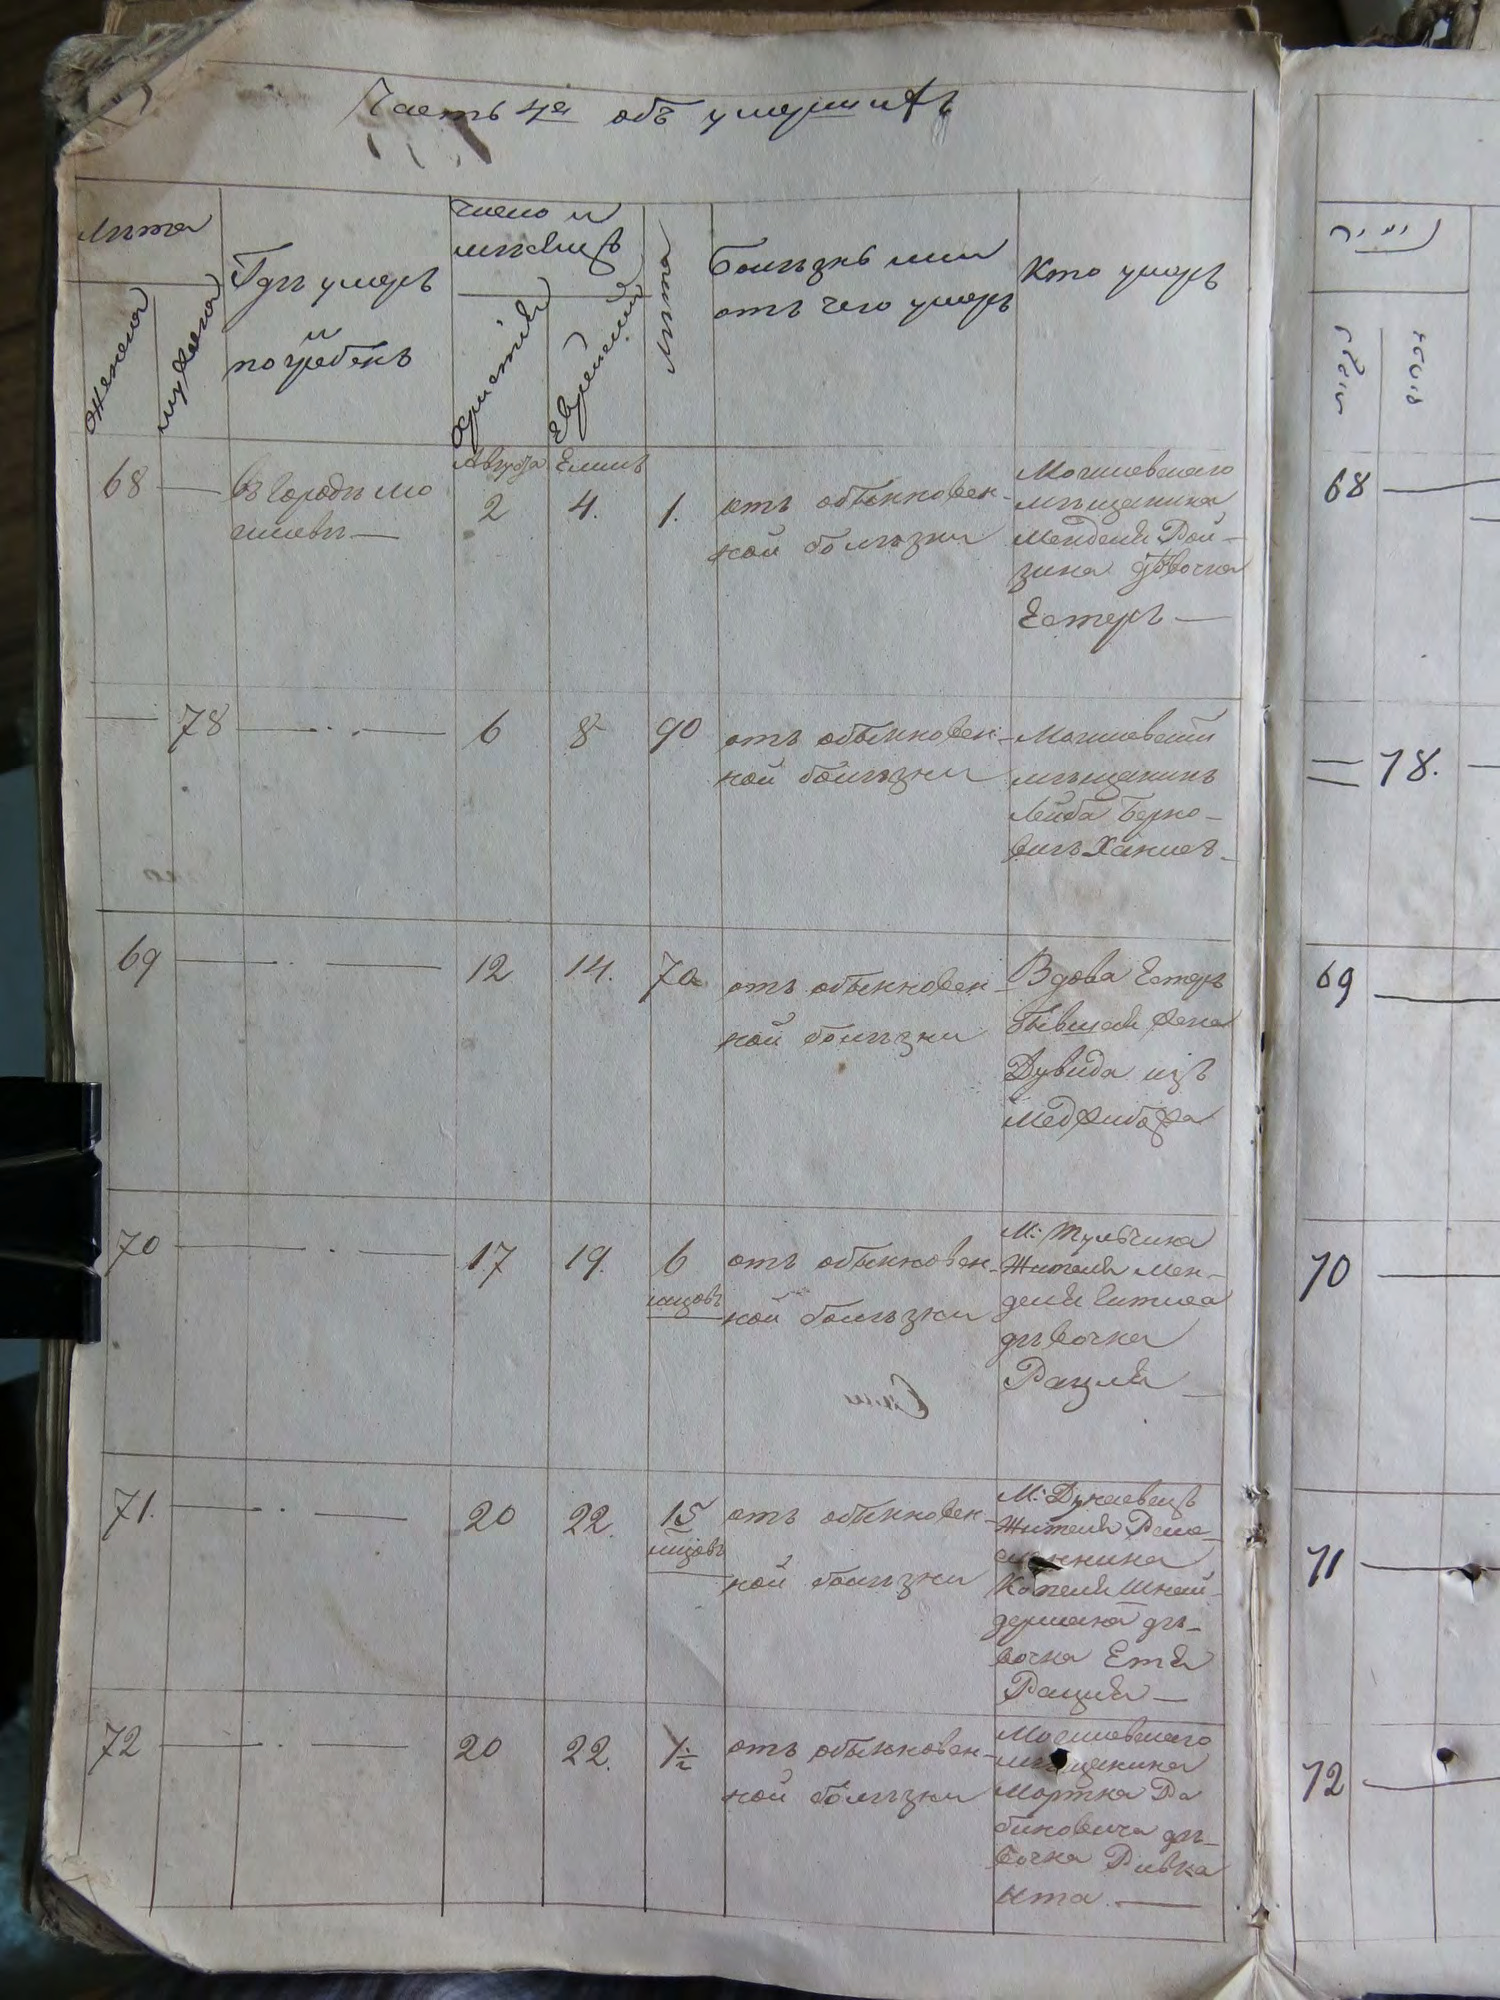 Часть 4а объ умершихъ
Лѣта
женска
мужеска
Гдѣ умеръ
и
погребенъ
число и
мѣсяцъ
Еврейскій
Лѣта
Болѣзнь или
отъ чего умеръ
Кто умеръ
68 — въ городѣ Мо
гилевѣ —
Августа 2
Елиль 4.
1.
отъ обыкновен-
ной болѣзни
Могилевскаго
мѣщанина
Менделя Рой-
зина дѣвочка
Естеръ —
— 78 — . — 6 8 90
отъ обыкновен-
ной болѣзни
Могилевскій
мѣщанинъ
Лейба Берко-
вичъ
69 — . — 12 14. 70
отъ обыкновен-
ной болѣзни
Вдова Естеръ
бывшая жена
Дувида изъ
Меджибожа
70 — . — 17 19. 6
мцовъ
отъ обыкновен-
ной болѣзни
М: Тульчина
Жителя Мен-
деля
дѣвочка
Рахля —
71. — . — 20 22. 15
мцовъ
отъ обыкновен-
ной болѣзни
М: Дунаевецъ
Жителя Реме-
сленника
Шнай-
дермана дѣ-
вочка Етя
72 — . — 20 22. 1½
отъ обыкновен-
ной болѣзни
Могилевскаго
мѣщанина
Мортка Ра
биновича дѣ-
вочка Ривка
Ита. —
68 —
= 78. —
69 —
70 —
71 —
72 —